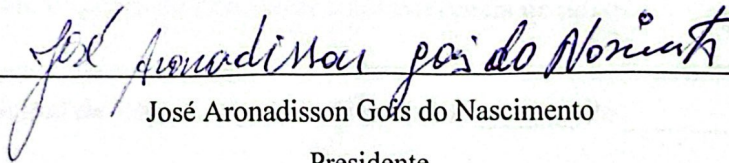 José Aronadisson Gois do Nascimento
José Aronadisson Gois do Nascimento
Presidente